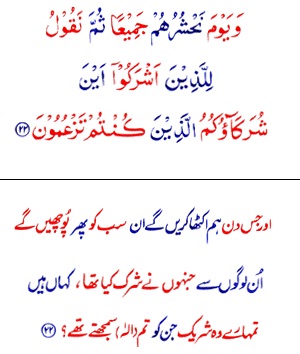 وَيَوْمَ نَحْشُرُهُمْ جَمِيْعًا ثُمَّ نَقُوْلُ
لِلَّذِيْنَ اَشْرَكُوْۤا اَيْنَ
شُرَكَآؤُكُمُ الَّذِيْنَ كُنْتُمْ تَزْعُمُوْنَ ﴿۲۲﴾
اور جس دن ہم اکٹھا کریں گے ان سب کو پھر پُوچھیں گے
اُن لوگوں سے جنہوں نے شرک کیا تھا، کہاں ہیں
تمہارے وہ شریک جن کو تم (الٰہ) سمجھتے تھے؟ ﴿۲۲﴾